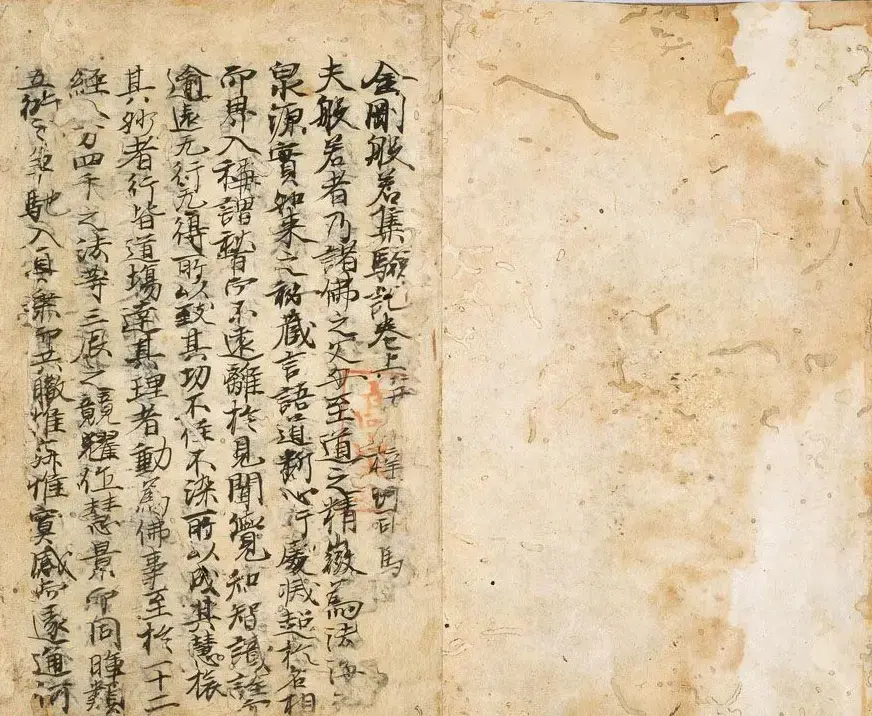 金剛般若集驗記卷上并 梓州司馬
夫般若者乃諸佛之父母至道之精微為法海之
泉源實如来之祕藏言語道斷心行處滅超於名相
而界入稱謂皆不遠離於見聞覺知智識
逾遠无行无得所以致其功不住不染所以成其慧
其妙者行皆道場達其理者動為佛事至於十二
經八万四千之法等三辰之競耀位慧景而同暉類
五 馳入真際而共轍惟寂惟寞感而遂通河